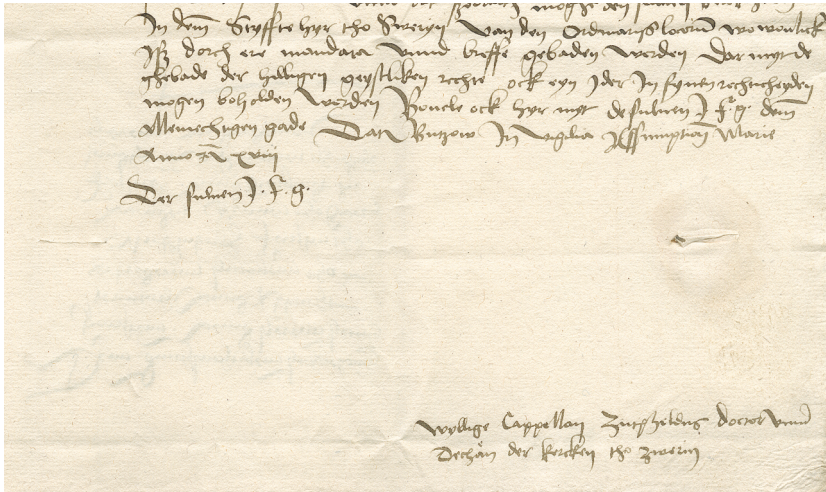 In dem Styffte hyr tho Sweryn van den Ordinariis locorum wo wonlick
ysz dorch ere mandata vnnd breffe gebaden werden Dar myt de
ghebade der hilligen geystliken rechte ock eyn yder In synen rechticheyden
mogen beholden werden Bouele ock hyr myt de suluen J. F. g. dem
Allmechtigen gade Dat Butzow In vigilia Assumption Marie
Anno xviii
Der suluen J. F. g.
wyllige Cappellan Zutfheldus doctor vnnd
Dechan der kercken tho zwerin